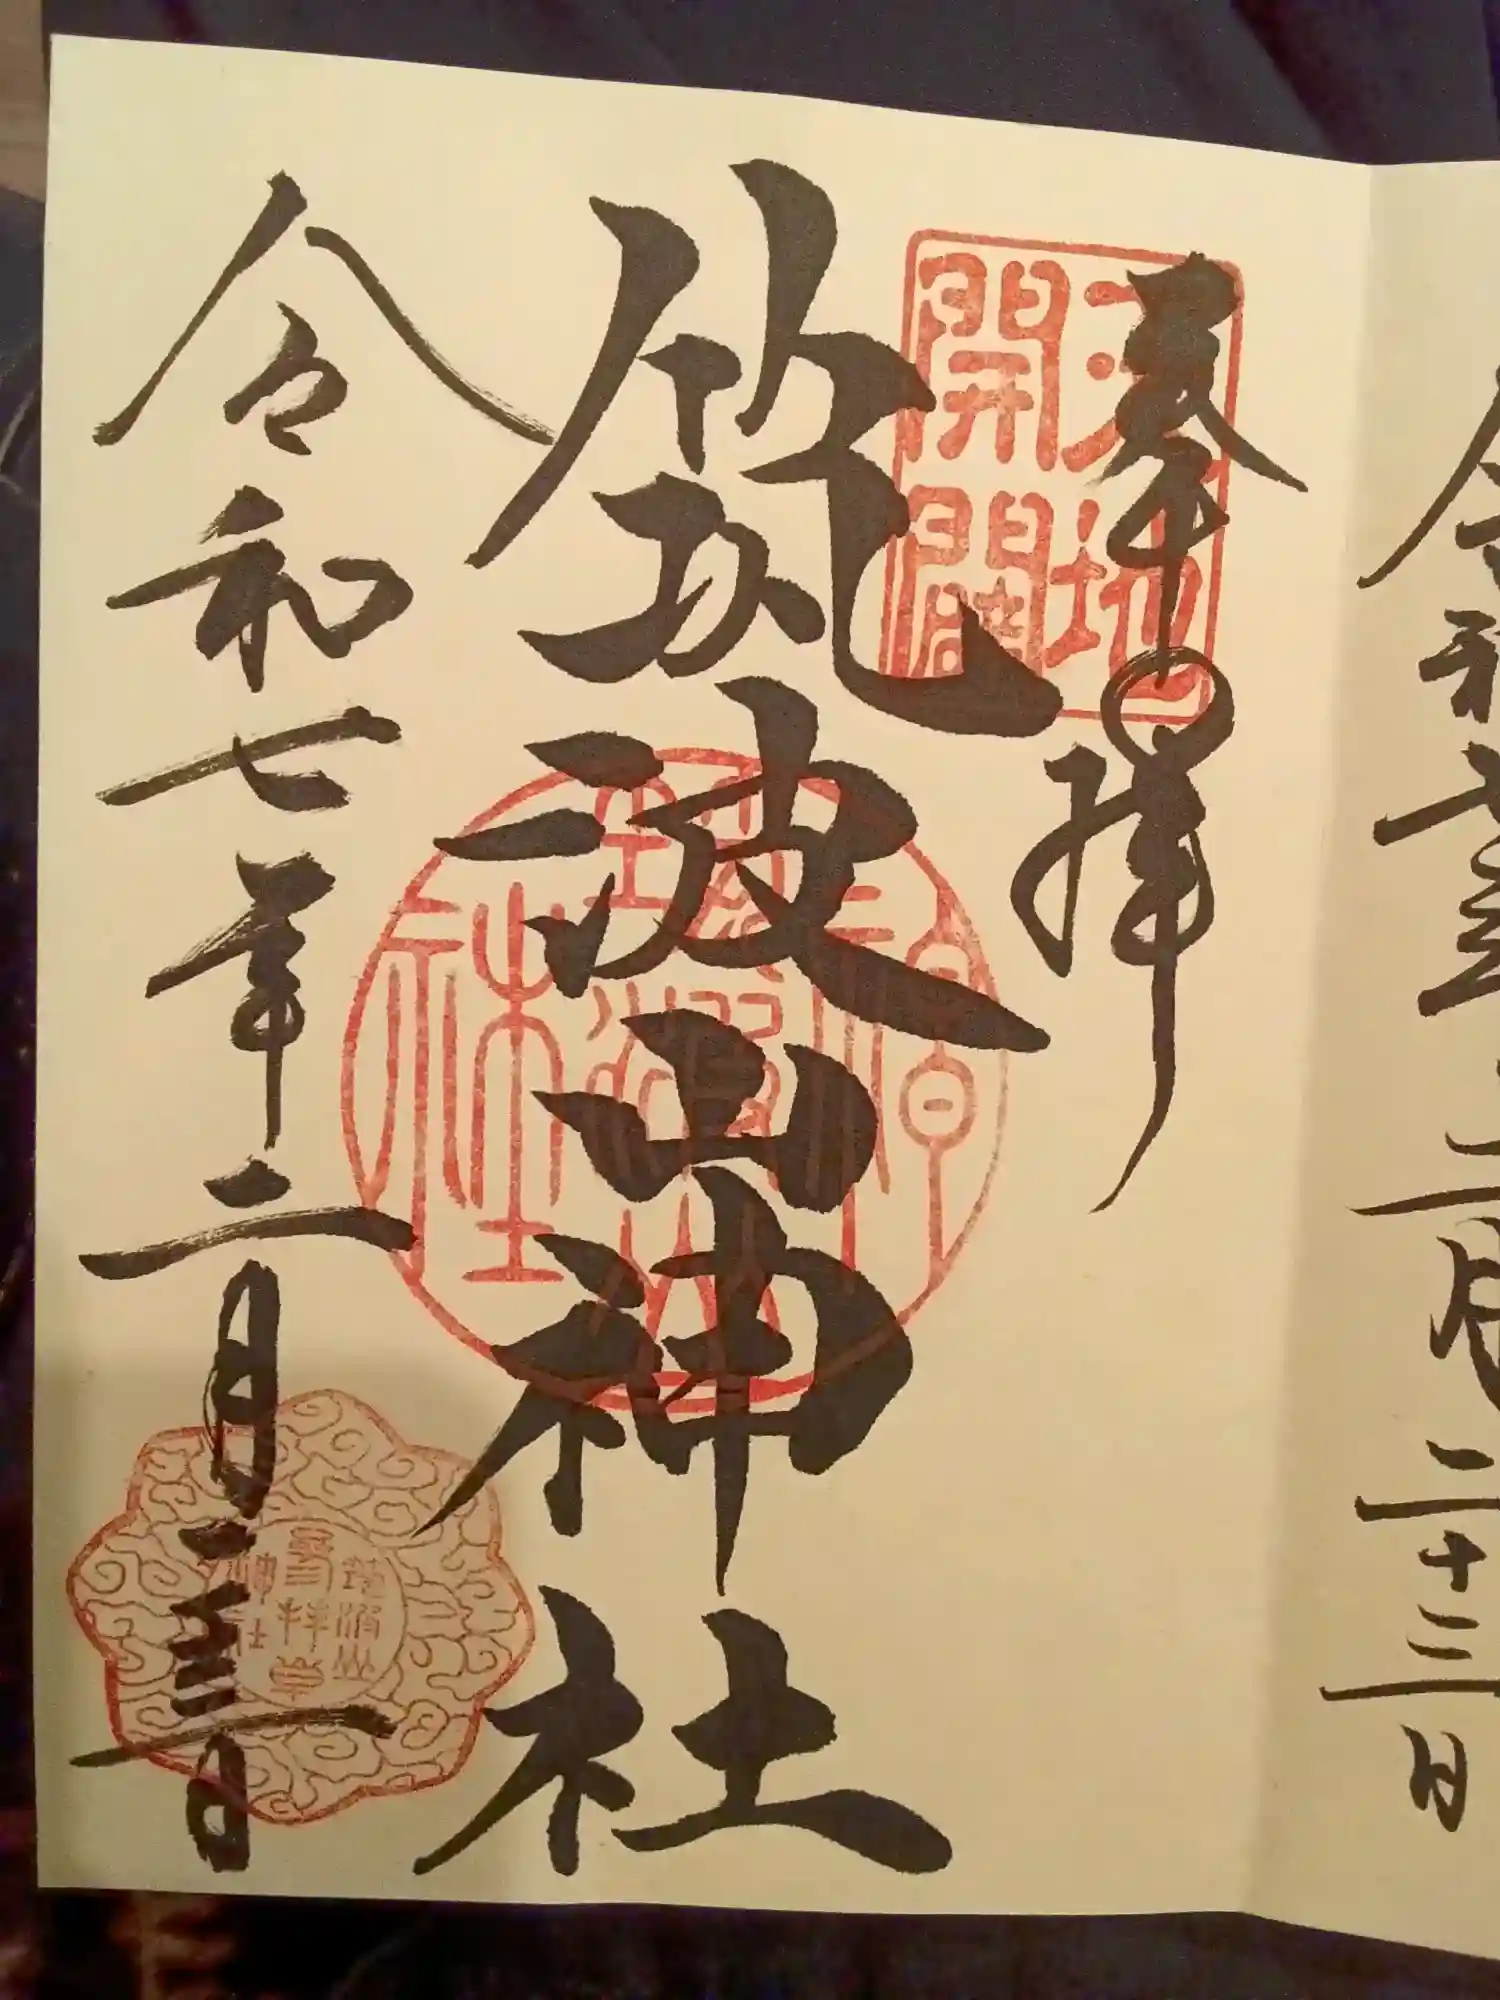 令和七年二月二十三日
奉拝
天地
開闢
筑波山神社
令和七年二月二十三日
筑波山
参拝章
神社